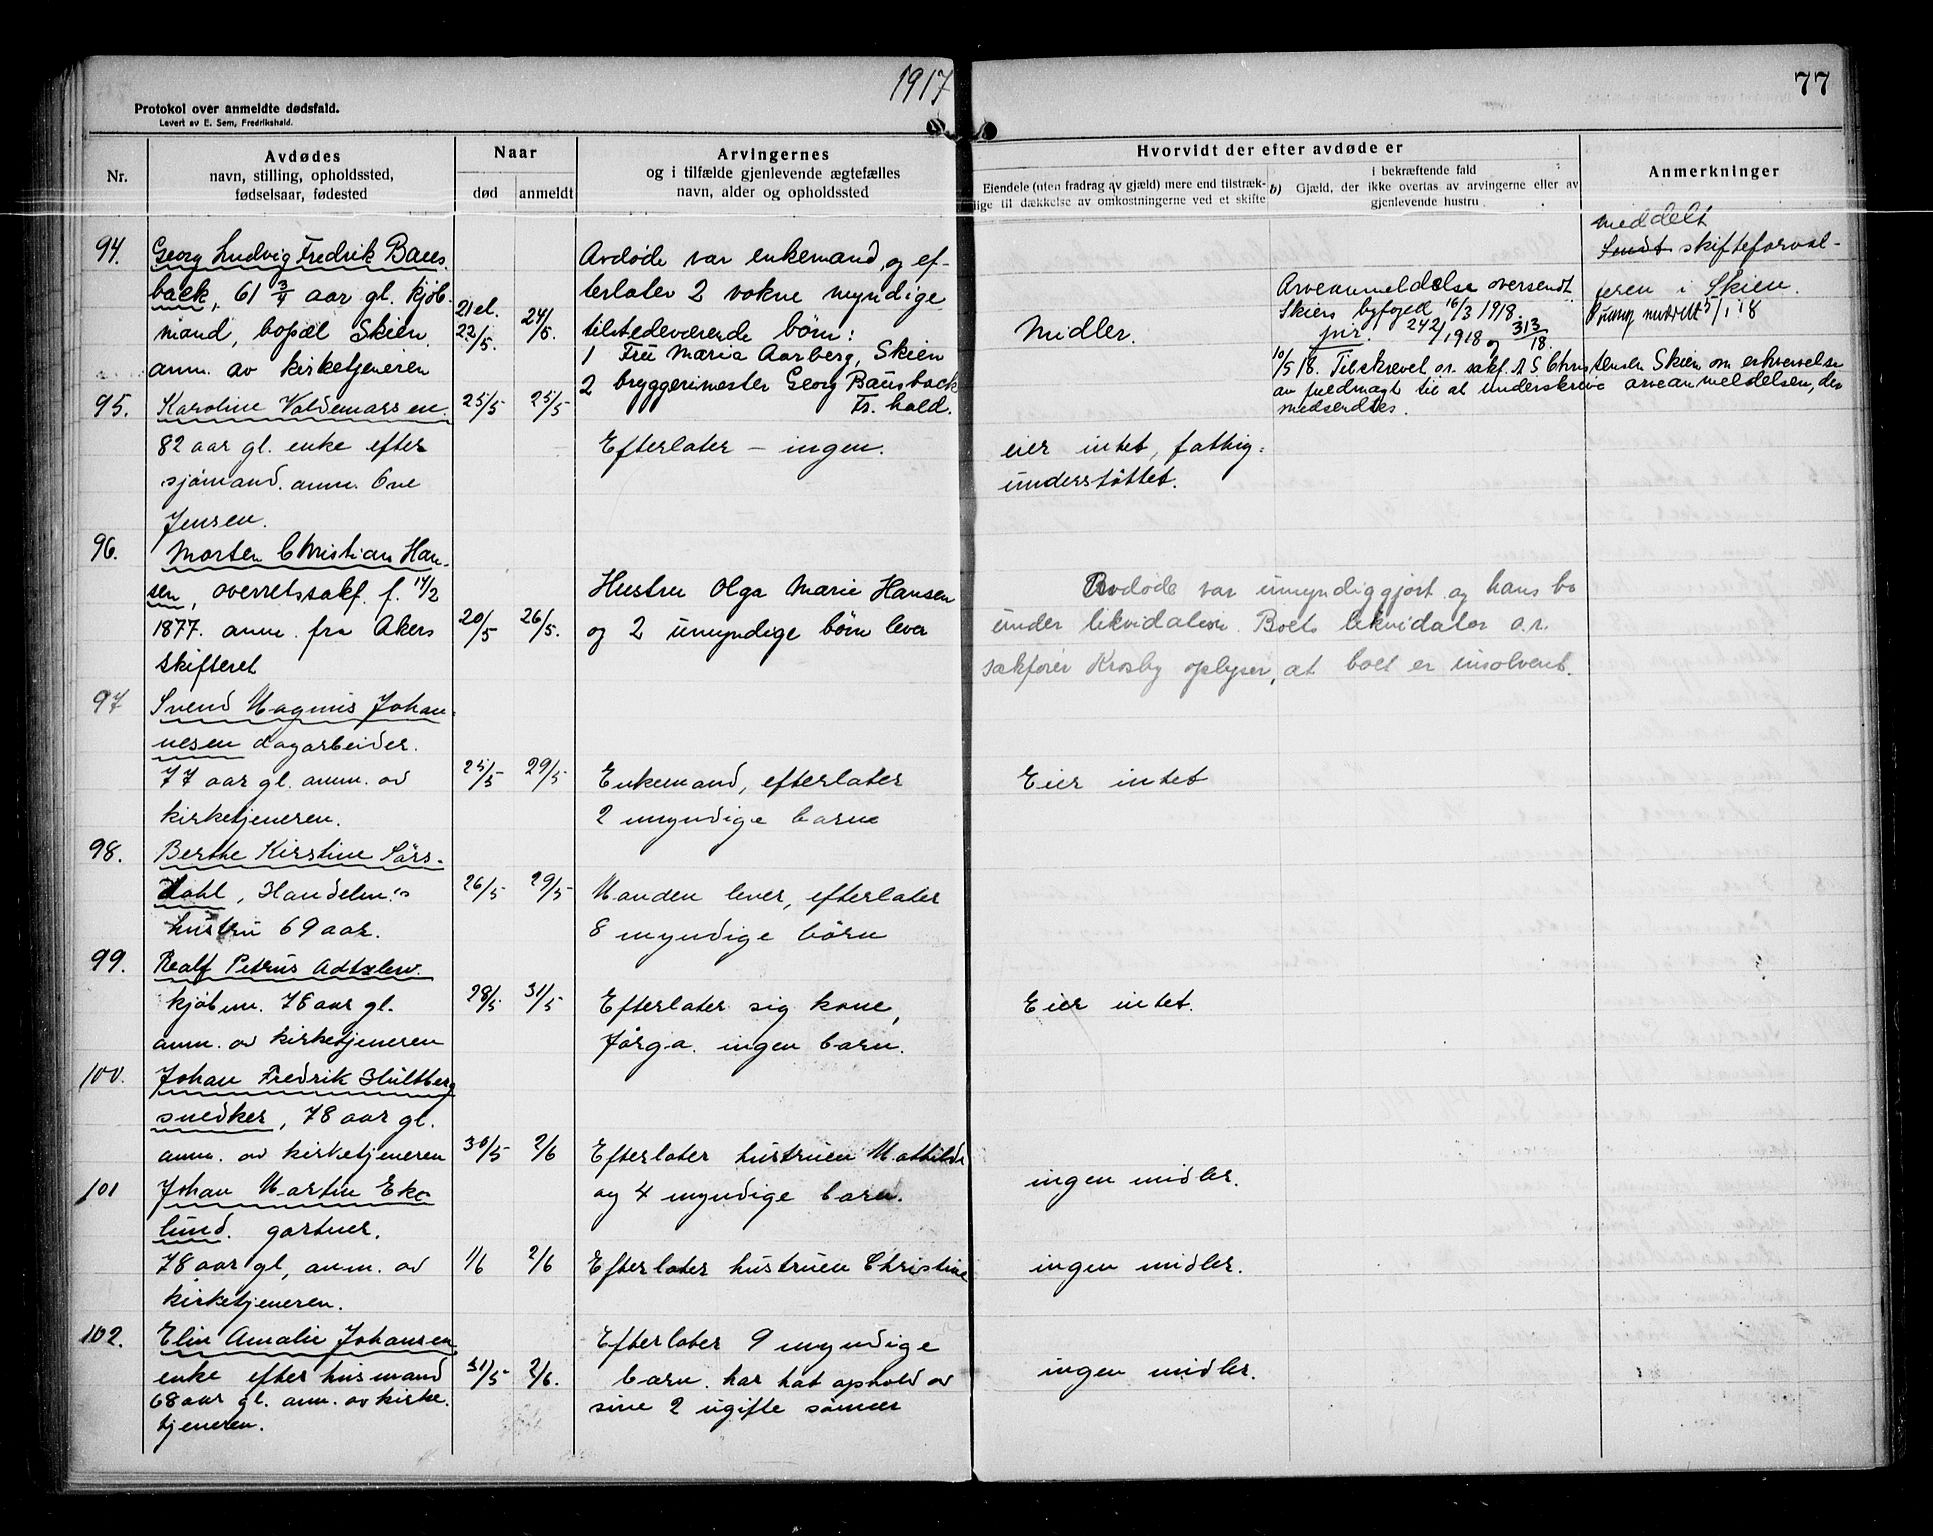 1917
77
Protokol over anmeldte dødsfald.
Levert av E. Sem, Fredrikshald.
Nr.
Avdødes
navn, stilling, opholdssted,
fødselsaar, fødested
Naar
død
anmeldt
Arvingernes
og i tilfælde gjenlevende ægtefælles
navn, alder og opholdssted
Hvorvidt der efter avdøde er
Eiendele (uten fradrag av gjæld) mere end tilstræk-
lige til dækkelse av omkostningerne ved et skifte
i bekræftende fald
b) Gjæld, der ikke overtas av arvingerne eller av
gjenlevende hustru
Anmerkninger
94.
Georg Ludvig Fredrik Baus-
back, 61 3/4 aar gl. kjøb-
mand, bopæl Skien
anm. av kirketjeneren
21 el.
22/5.
24/5.
Avdøde var enkemand, og ef-
terlater 2 vokne myndige
tilstedeværende børn:
1 Fru Maria Aarberg, Skien
2 bryggerimester Georg Bausback
Fr. hald.
Midler.
Arveanmeldelse oversendt
Skiens byfoged 16/3 1918.
jnr. 242/1918 og 313/18.
10/5 18. Tilskrevet o.r. sakf. A S Christensen Skien om erhvervelse
av fuldmagt til at underskrive arveanmeldelsen, der
medsendtes.
meddelt
Sendt skifteforval-
teren i Skien.
5/1 18
95.
Karoline Valdemarsen
82 aar gl. enke efter
sjømand. anm. Ove
Jensen.
25/5
25/5
Efterlater – ingen.
eier intet, fattig-
understøttet.
96.
Morten Christian Han-
sen, overretssakf. f. 14/2
1877. anm. fra Akers
skifteret
20/5
26/5.
Hustru Olga Marie Hansen
og 2 umyndige børn lever
Avdøde var umyndiggjort og hans bo
under likvidation. Boets likvidator o.r.
sakfører Krosby oplyser, at boet er insolvent.
97
Svend Magnus Johan-
nesen dagarbeider.
77 aar gl. anm. av
kirketjeneren.
25/5
29/5
Enkemand, efterlater
2 myndige barn
Eier intet
98.
Berthe Kirstine Sørs-
dahl, Handelm:s
hustru 69 aar.
26/5
29/5
Manden lever, efterlater
8 myndige børn
99.
Realf Petrus
kjøbm. 78 aar gl.
anm. av kirketjeneren
28/5
31/5
Efterlater sig kone,
Jørga. ingen barn.
Eier intet.
100.
Johan Fredrik Hultberg
snedker, 78 aar gl.
anm. av kirketjeneren
30/5
2/6
Efterlater hustruen Mathilde
og 4 myndige barn.
ingen midler.
101
Johan Martin Eke-
lund. gartner.
78 aar gl, anm. av
kirketjeneren.
1/6
2/6
Efterlater hustruen Christine
ingen midler.
102.
Elin Amalie Johansen
enke efter husmand
68 aar gl. anm. av kirke-
tjeneren.
31/5
2/6.
Efterlater 9 myndige
barn. har hat ophold av
sine 2 ugifte sønner
ingen midler.